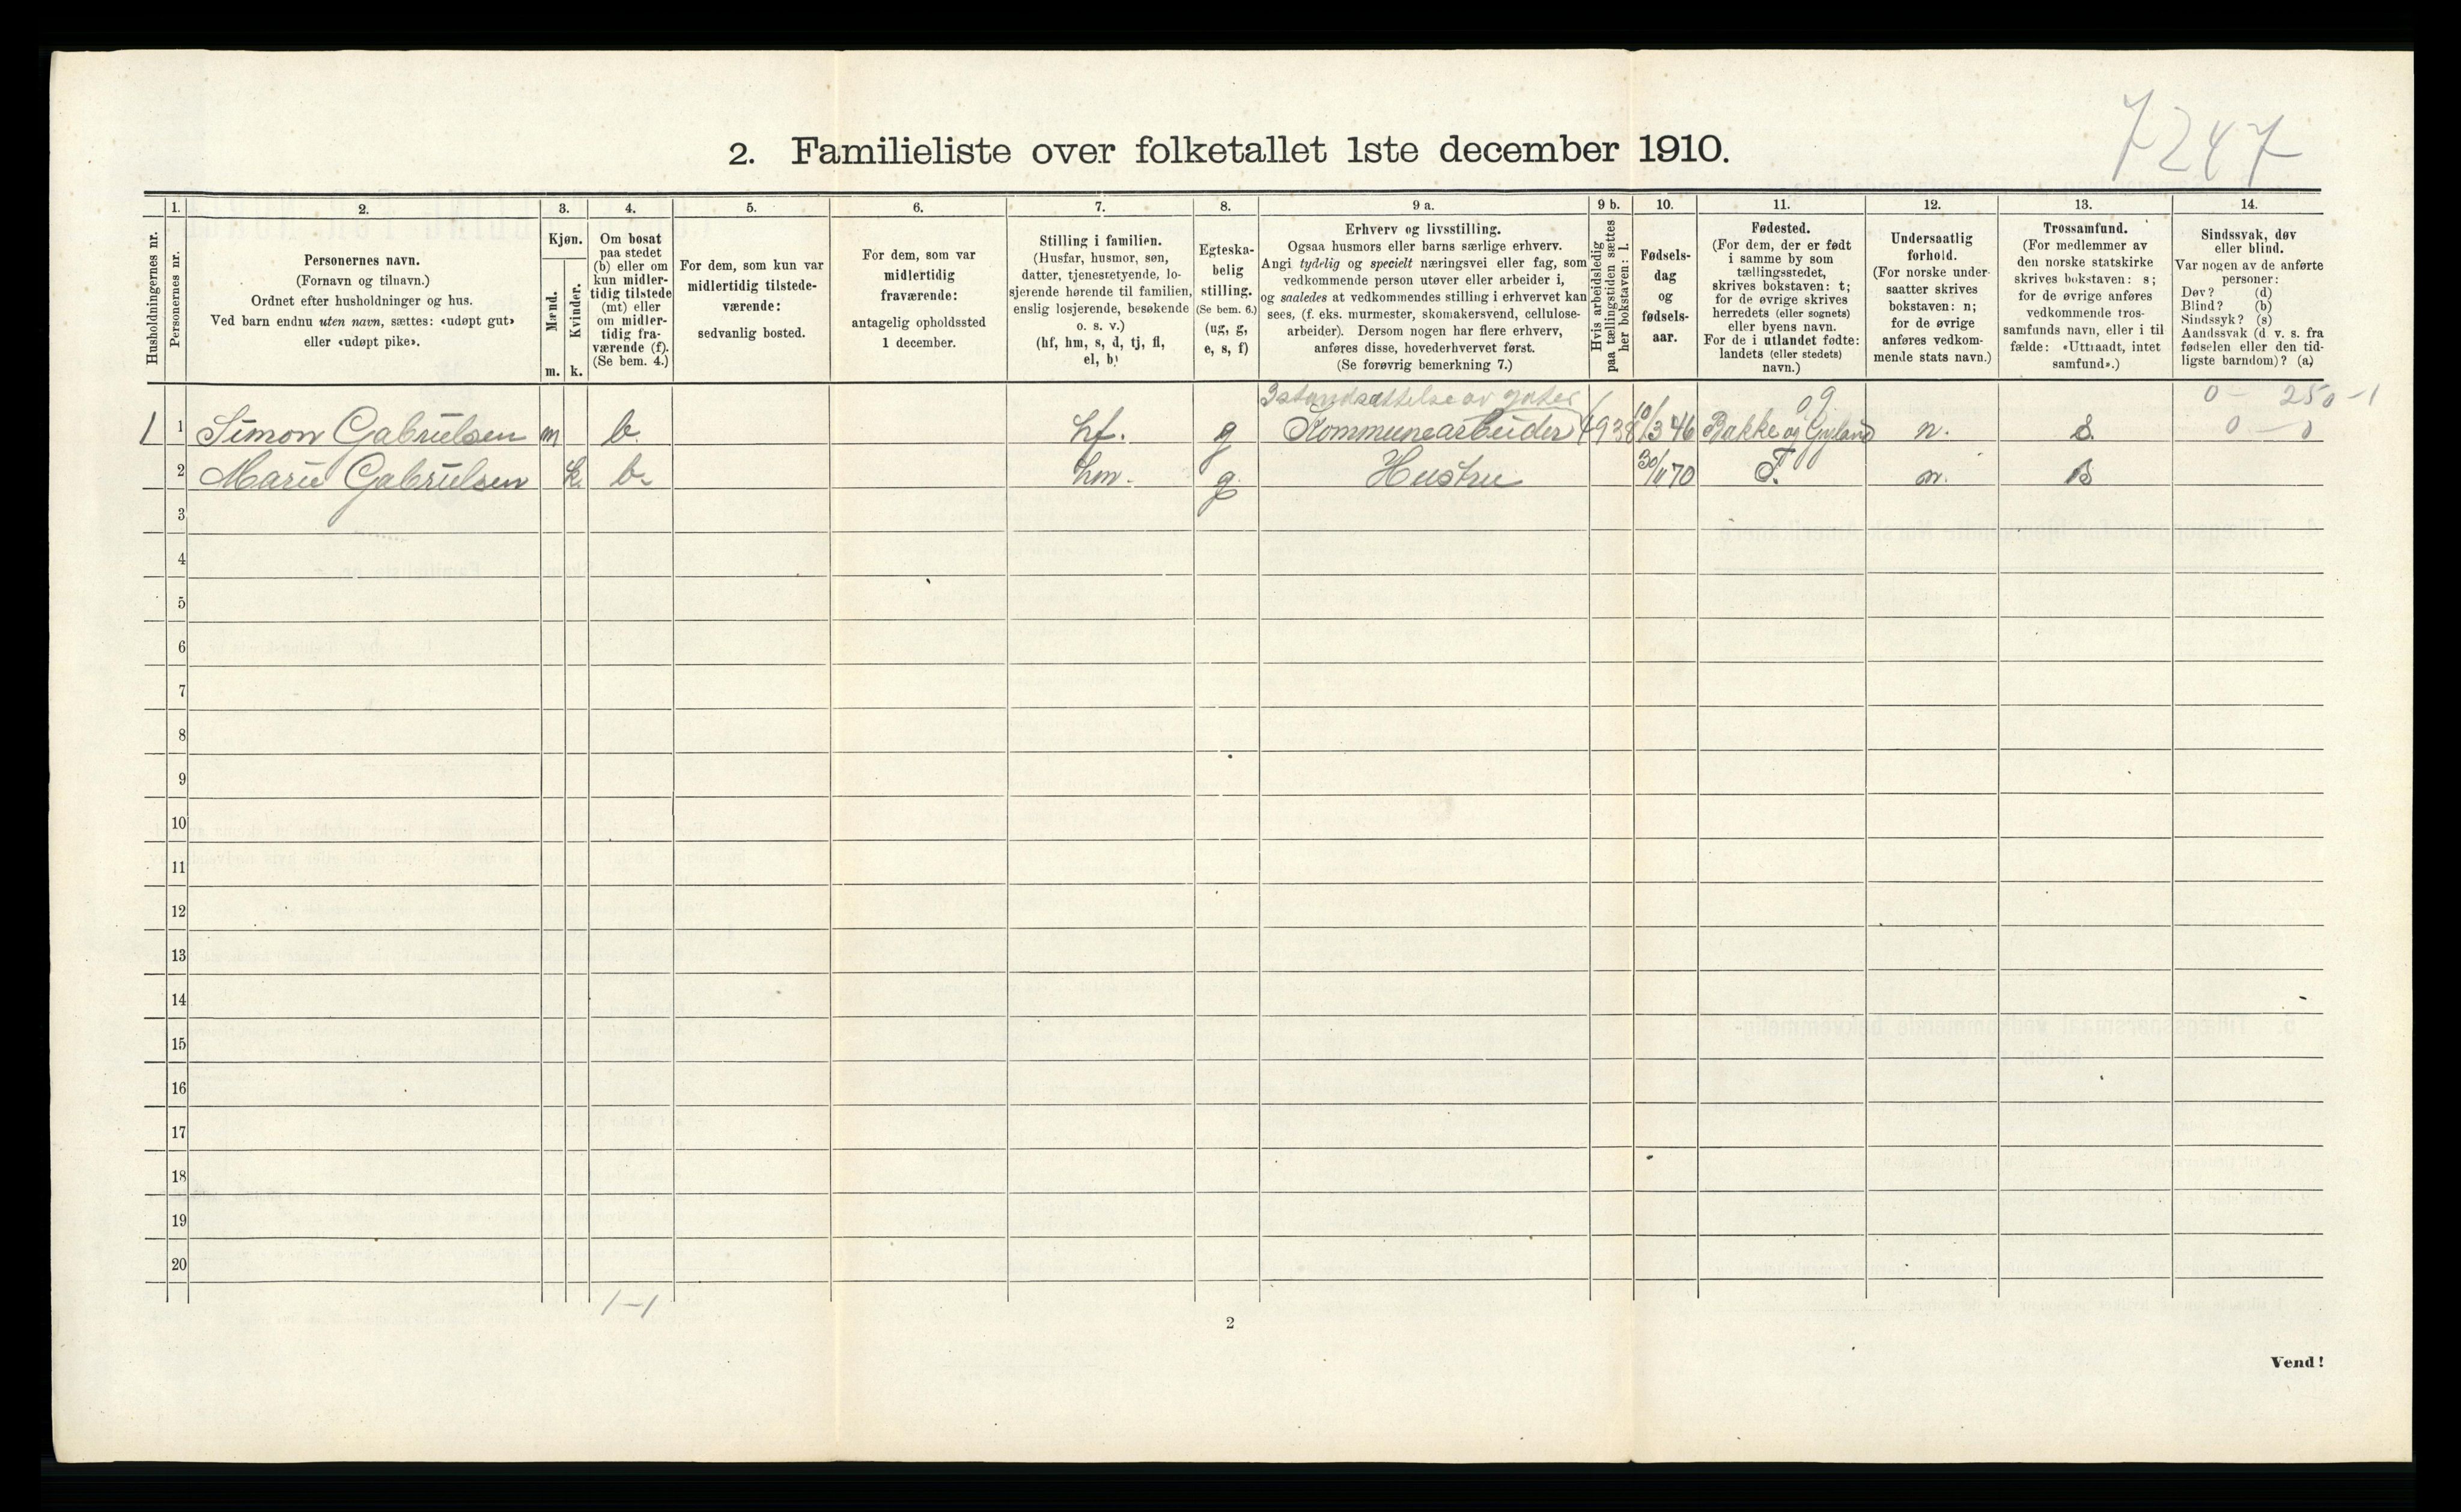 7247
2. Familieliste over folketallet 1ste december 1910.
Husholdningernes nr.
1.
Personernes nr.
2.
Personernes navn.
(Fornavn og tilnavn.)
Ordnet efter husholdninger og hus.
Ved barn endnu uten navn, sættes: «udøpt gut»
eller «udøpt pike».
3.
Kjøn.
Mænd.
Kvinder.
m. k.
4.
Om bosat
paa stedet
(b) eller om
kun midler-
tidig tilstede
(mt) eller
om midler-
tidig fra-
værende (f).
(Se bem. 4.)
5.
For dem, som kun var
midlertidig tilstede-
værende:
sedvanlig bosted.
6.
For dem, som var
midlertidig
fraværende:
antagelig opholdssted
1 december.
7.
Stilling i familien.
(Husfar, husmor, søn,
datter, tjenestetyende, lo-
sjerende hørende til familien,
enslig losjerende, besøkende
o. s. v.)
(hf, hm, s, d, tj, fl,
el, b)
8.
Egteska-
belig
stilling.
(Se bem. 6.)
(ug, g,
e, s, f)
9 a.
Erhverv og livsstilling.
Ogsaa husmors eller barns særlige erhverv.
Angi tydelig og specielt næringsvei eller fag, som
vedkommende person utøver eller arbeider i,
og saaledes at vedkommendes stilling i erhvervet kan
sees, (f. eks. murmester, skomakersvend, cellulose-
arbeider). Dersom nogen har flere erhverv,
anføres disse, hovederhvervet først.
(Se forøvrig bemerkning 7.)
9 b.
Hvis arbeidsledig
paa tællingstiden sættes
her bokstaven: l.
10.
Fødsels-
dag
og
fødsels-
aar.
11.
Fødested.
(For dem, der er født
i samme by som
tællingsstedet,
skrives bokstaven: t;
for de øvrige skrives
herredets (eller sognets)
eller byens navn.
For de i utlandet fødte:
landets (eller stedets)
navn.)
12.
Undersaatlig
forhold.
(For norske under-
saatter skrives
bokstaven: n;
for de øvrige
anføres vedkom-
mende stats navn.)
13.
Trossamfund.
(For medlemmer av
den norske statskirke
skrives bokstaven: s;
for de øvrige anføres
vedkommende tros-
samfunds navn, eller i til
fælde: «Uttraadt, intet
samfund».)
14.
Sindssvak, døv
eller blind.
Var nogen av de anførte
personer:
Døv? (d)
Blind? (b)
Sindssyk? (s)
Aandssvak (d. v. s. fra
fødselen eller den tid-
ligste barndom)? (a)
Istandsættelse av gater 99 0 - 250-1
1 1 Simon Gabrielsen m b. hf. g Kommunearbeider 4938 10/3 46 Bakke og Gyland n. s. 0-0
2 Marie Gabrielsen k. b. hm. g. Hustru 30/11 70 T. n. s
3
4
5
6
7
8
9
10
11
12
13
14
15
16
17
18
19
20
1-1
2
Vend!